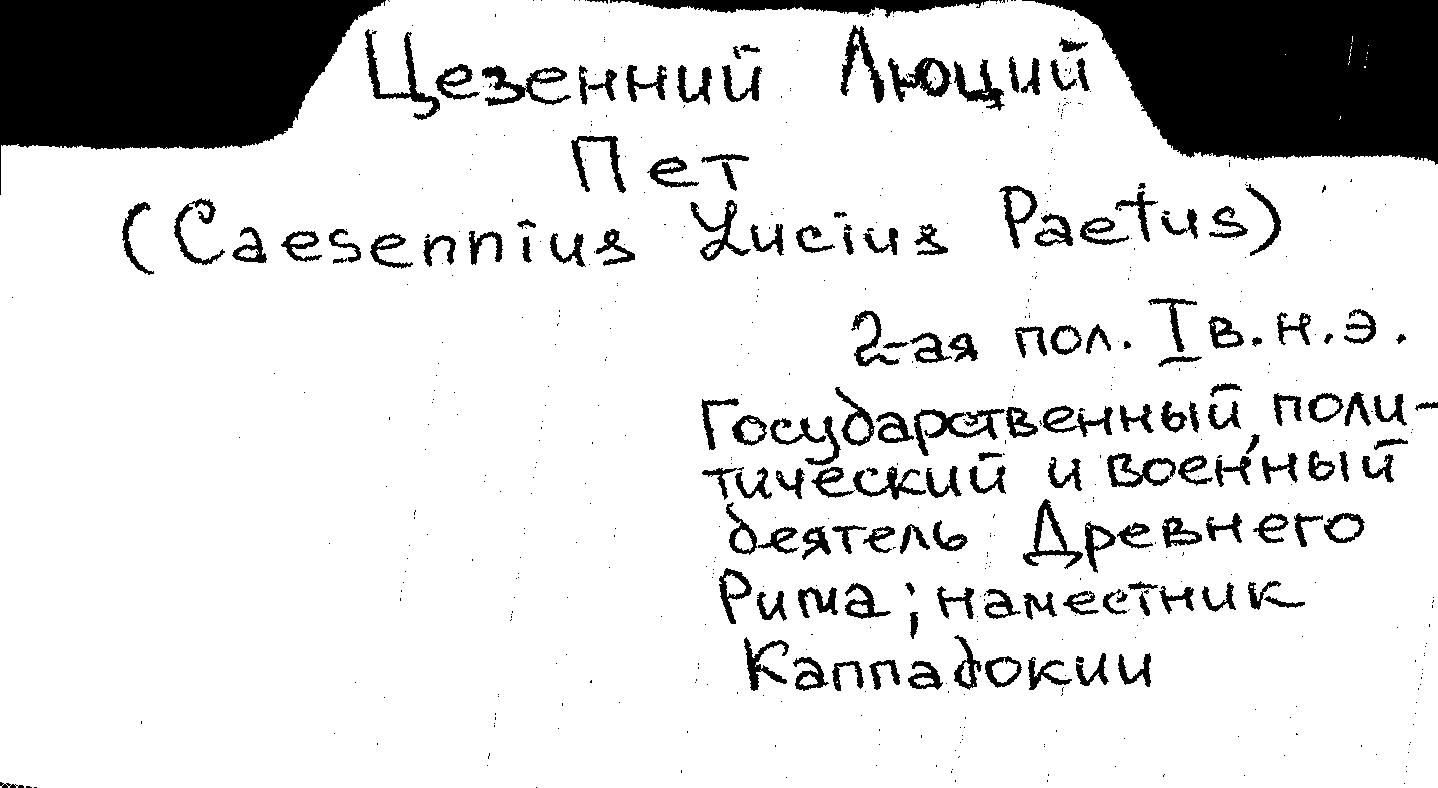 Цезенний Люций
Пет
(Caesennius Lucius Paetus)
2-ая пол. I в. н. э.
Государственный, поли-
тический и военный
деятель Древнего
Рима; наместник
Каппадокии